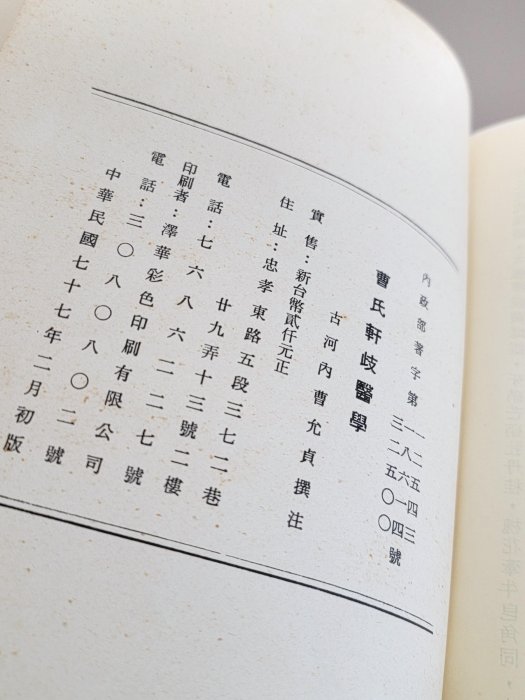 內政部著字第
一二五四三
一八六一四
三二五〇〇
號
曹氏軒歧醫學
古河內曹允貞撰注
實售：新台幣貳仟元正
住址：忠孝東路五段三七二巷
廿九弄十三號二樓
電話：七六八六二二七號
印刷者：澤華彩色印刷有限公司
電話：三〇八〇八〇二號
中華民國七十七年二月初版